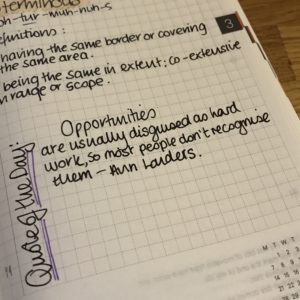 terminous
tur-muh-nuh-s
efinitions :
having the same border or covering
the same area.
being the same in extent; co-extensive
in range or scope.
3
Quote of the Day:
Opportunities
are usually disguised as hard
work, so most people don't recognise
them - Ann Landers.
M T W T
1 2
7 8 9
14 15 16
21 22 23
28 29